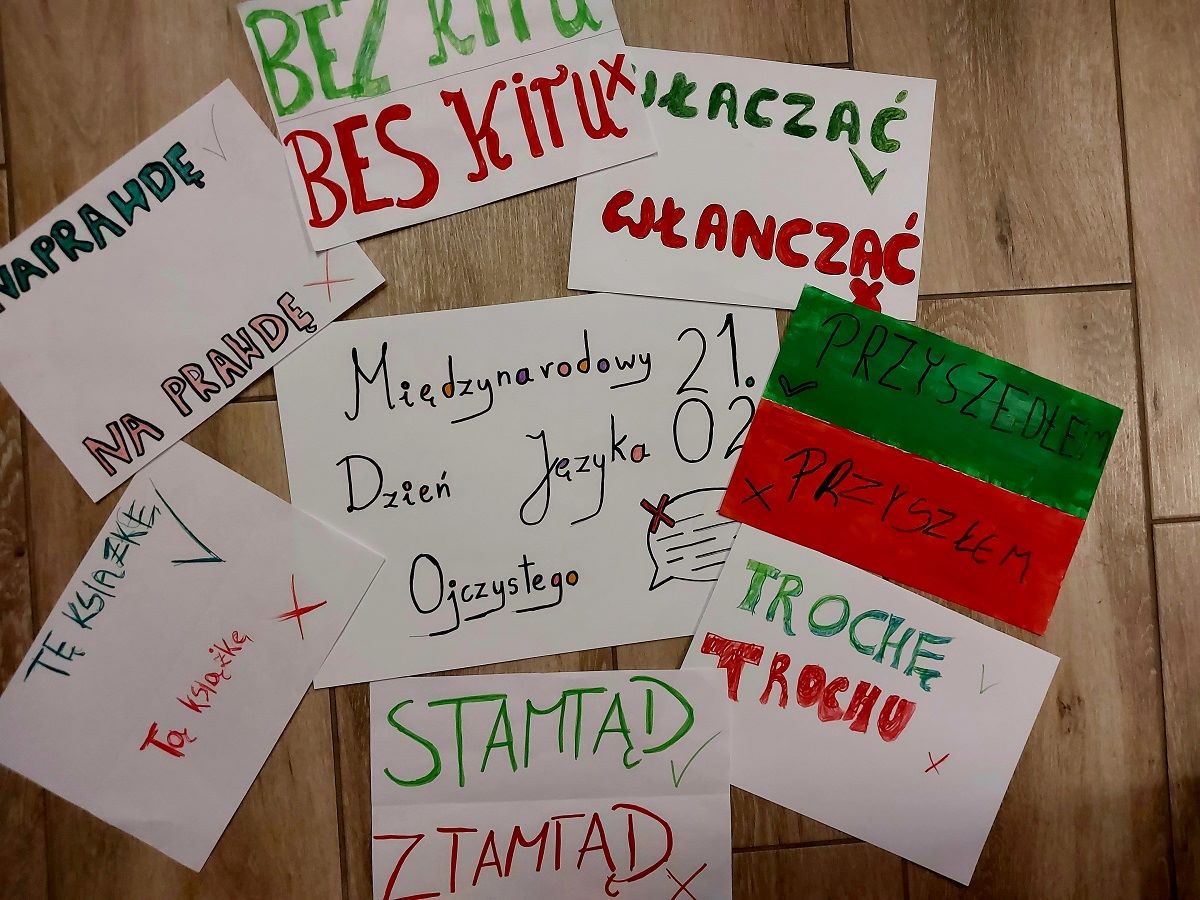 BEZ KITU
BES KITU X
WŁĄCZAĆ
WŁANCZAĆ
X
NAPRAWDĘ
NA PRAWDĘ
Międzynarodowy 21.
Dzień Języka 02
Ojczystego
PRZYSZEDŁEM
X PRZYSZŁEM
TĘ KSIĄŻKĘ
Tą książkę
TROCHĘ
TROCHU
X
STAMTĄD
ZTAMTĄD
X